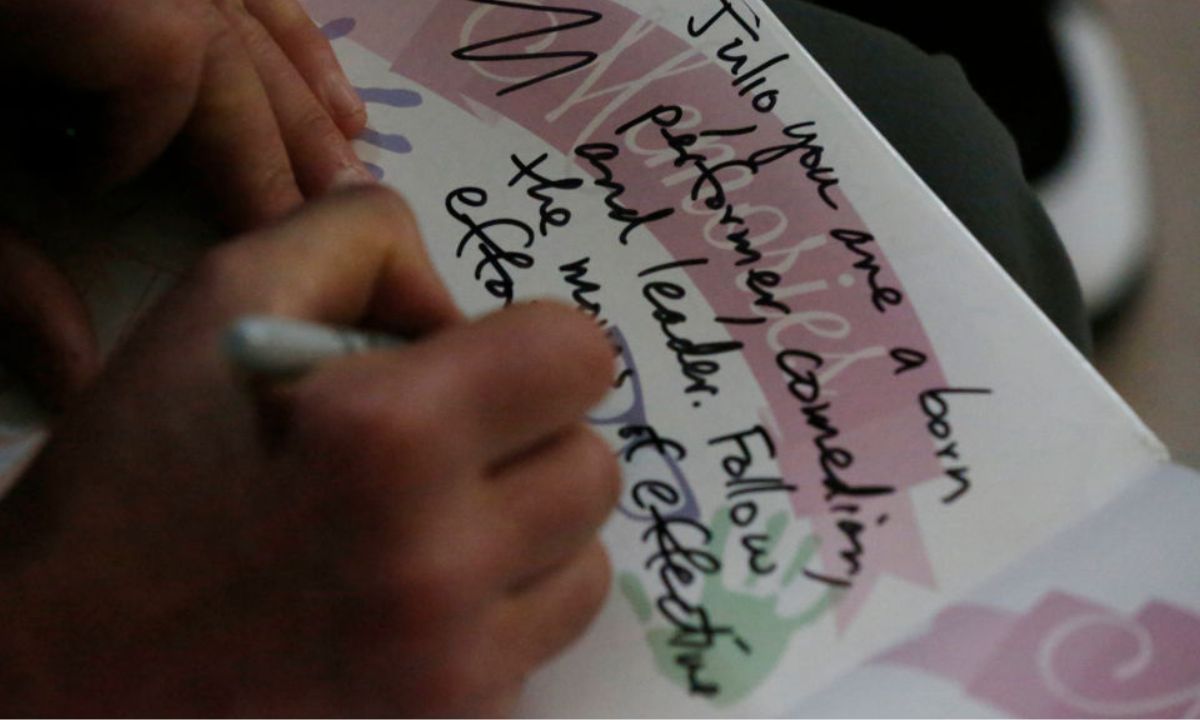 Memories
Julio you are a born
performer, comedian,
and leader. Follow
the of effective